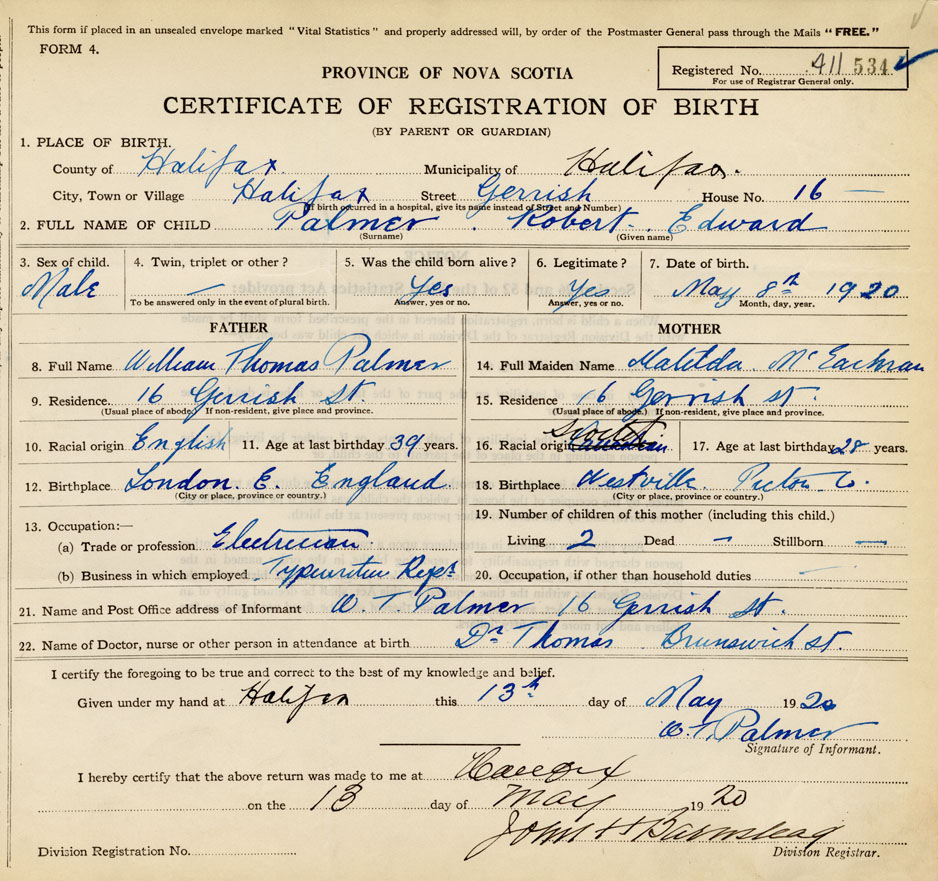 This form if placed in an unsealed envelope marked "Vital Statistics" and properly addressed will, by order of the Postmaster General pass through the Mails "FREE."
FORM 4.
Registered No. 411 534
For use of Registrar General only.
PROVINCE OF NOVA SCOTIA
CERTIFICATE OF REGISTRATION OF BIRTH
(BY PARENT OR GUARDIAN)
1. PLACE OF BIRTH.
County of Halifax Municipality of Halifax.
City, Town or Village Halifax Street Gerrish House No. 16 —
(If birth occurred in a hospital, give its name instead of Street and Number)
2. FULL NAME OF CHILD Palmer. Robert. Edward
(Surname) (Given name)
3. Sex of child. 4. Twin, triplet or other? 5. Was the child born alive? 6. Legitimate? 7. Date of birth.
Male — Yes Yes May 8th 1920
To be answered only in the event of plural birth. Answer, yes or no. Answer, yes or no. Month, day, year.
FATHER MOTHER
8. Full Name William Thomas Palmer 14. Full Maiden Name Matilda. McEachran
9. Residence. 16 Gerrish St. 15. Residence 16 Gerrish St.
(Usual place of abode) If non-resident, give place and province. (Usual place of abode.) If non-resident, give place and province.
10. Racial origin English 11. Age at last birthday 39 years. 16. Racial origin Scotch 17. Age at last birthday 28 years.
12. Birthplace London. E. England 18. Birthplace Westville. Pictou Co.
(City or place, province or country.) (City or place, province or country.)
13. Occupation:— 19. Number of children of this mother (including this child.)
(a) Trade or profession Electrician Living 2 Dead — Stillborn —
(b) Business in which employed Typewriter Reps 20. Occupation, if other than household duties —
21. Name and Post Office address of Informant W. T. Palmer 16 Gerrish St.
22. Name of Doctor, nurse or other person in attendance at birth Dr Thomas Brunswick St.
I certify the foregoing to be true and correct to the best of my knowledge and belief.
Given under my hand at Halifax this 13th day of May 1920
W. T. Palmer
Signature of Informant.
I hereby certify that the above return was made to me at Halifax
on the 13 day of May 1920
John H Barnstead
Division Registration No. Division Registrar.